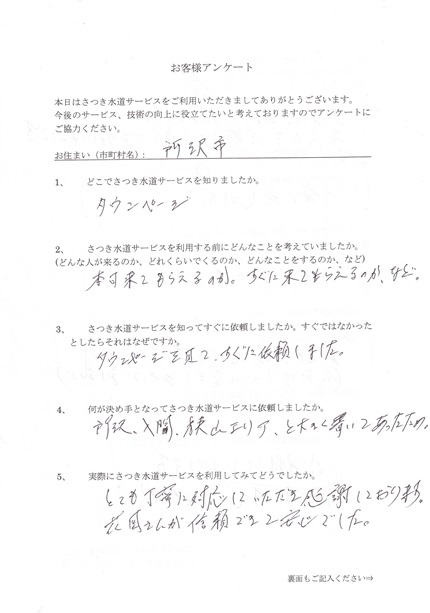 お客様アンケート
本日はさつき水道サービスをご利用いただきましてありがとうございます。
今後のサービス、技術の向上に役立てたいと考えておりますのでアンケートに
ご協力ください。
お住まい（市町村名）： 所沢市
1、 どこでさつき水道サービスを知りましたか。
タウンページ
2、 さつき水道サービスを利用する前にどんなことを考えていましたか。
(どんな人が来るのか、どれくらいでくるのか、どんなことをするのか、など)
本日来てもらえるのか。すぐに来てもらえるのか、など。
3、 さつき水道サービスを知ってすぐに依頼しましたか。すぐではなかった
としたらそれはなぜですか。
タウンページを見て、すぐに依頼しました。
4、 何が決め手となってさつき水道サービスに依頼しましたか。
所沢、入間、狭山エリア、と大きく書いてあったため。
5、 実際にさつき水道サービスを利用してみてどうでしたか。
とても丁寧に対応していただき感謝しております。
さんが信頼できて安心でした。
裏面もご記入ください⇒